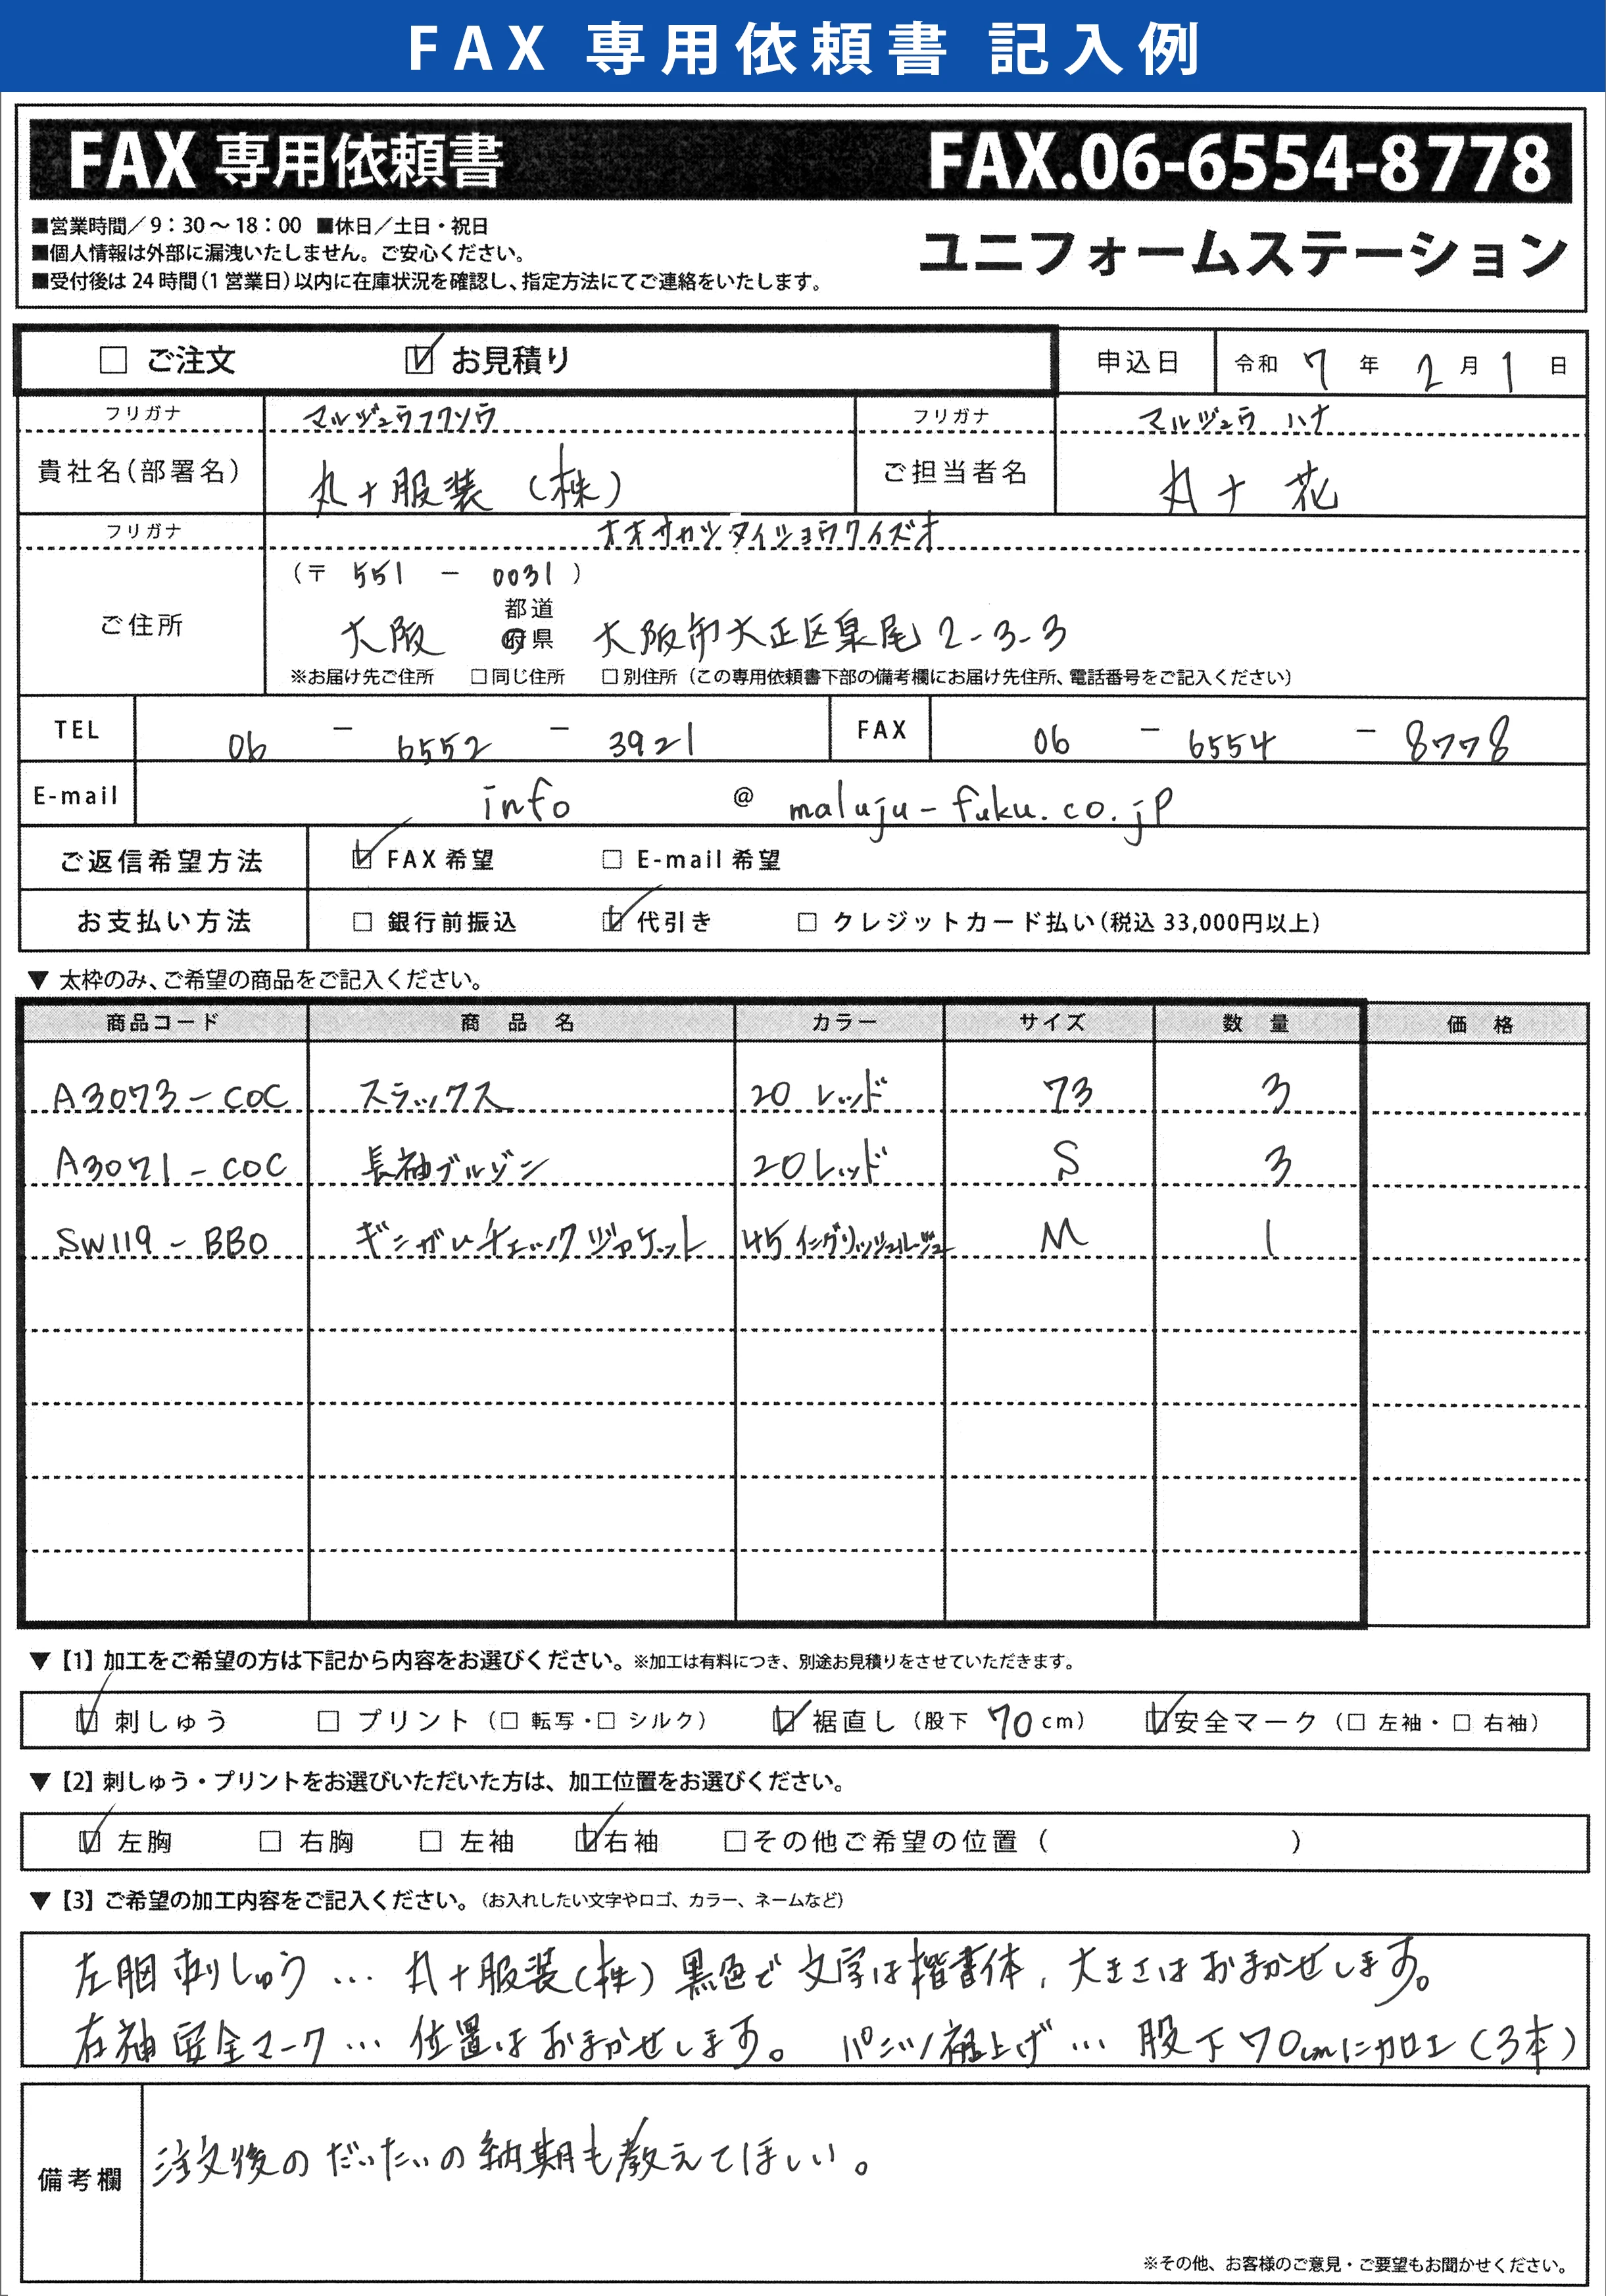 FAX 専用依頼書 記入例
FAX 専用依頼書 FAX.06-6554-8778
■営業時間／9：30～18：00 ■休日／土日・祝日
■個人情報は外部に漏洩いたしません。ご安心ください。
■受付後は 24 時間（1 営業日）以内に在庫状況を確認し、指定方法にてご連絡をいたします。
ユニフォームステーション
□ ご注文 ☑ お見積り 申込日 令和 7 年 2 月 1 日
フリガナ マルジュウフクソウ フリガナ マルジュウ ハナ
貴社名（部署名） 丸十服装（株） ご担当者名 丸十 花
フリガナ オオサカシタイショウクイズオ
（〒 551 － 0031 ）
ご住所 大阪 都道府県 大阪市大正区泉尾2-3-3
※お届け先ご住所 □同じ住所 □別住所（この専用依頼書下部の備考欄にお届け先住所、電話番号をご記入ください）
TEL 06 － 6552 － 3921 FAX 06 － 6554 － 8778
E-mail info @ maluju-fuku.co.jp
ご返信希望方法 ☑ FAX 希望 □ E-mail 希望
お支払い方法 □ 銀行前振込 ☑ 代引き □ クレジットカード払い（税込 33,000円以上）
▼ 太枠のみ、ご希望の商品をご記入ください。
商品コード 商品名 カラー サイズ 数量 価格
A3073-COC スラックス 20 レッド 73 3
A3071-COC 長袖ブルゾン 20レッド S 3
SW119-BBO ギンガムチェックジャケット 45 M 1
▼【1】加工をご希望の方は下記から内容をお選びください。※加工は有料につき、別途お見積りをさせていただきます。
☑ 刺しゅう □ プリント（□ 転写・□ シルク） ☑ 裾直し（股下 70 cm） ☑安全マーク（□ 左袖・□ 右袖）
▼【2】刺しゅう・プリントをお選びいただいた方は、加工位置をお選びください。
☑ 左胸 □ 右胸 □ 左袖 ☑右袖 □その他ご希望の位置（ ）
▼【3】ご希望の加工内容をご記入ください。（お入れしたい文字やロゴ、カラー、ネームなど）
左胸刺しゅう … 丸十服装（株）黒色で文字は楷書体、大きさはおまかせします。
右袖安全マーク … 位置はおまかせします。 パンツ裾上げ … 股下70cmに加工（3本）
備考欄 注文後のだいたいの納期も教えてほしい。
※その他、お客様のご意見・ご要望もお聞かせください。